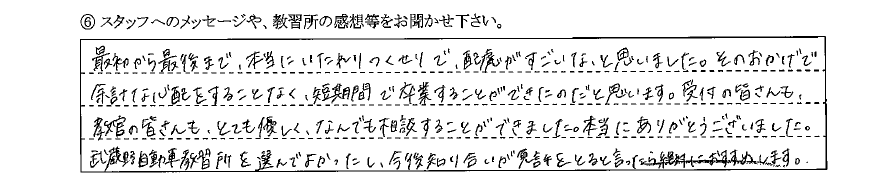 ⑥ スタッフへのメッセージや、教習所の感想等をお聞かせ下さい。
最初から最後まで、本当にいたれりつくせりで、配慮がすごいな、と思いました。そのおかげで
余計な心配をすることなく、短期間で卒業することができたのだと思います。受付の皆さんも、
教官の皆さんも、とても優しく、なんでも相談することができました。本当にありがとうございました。
武蔵野自動車教習所を選んでよかったし、今後知り合いが免許をとると言ったら絶対におすすめします。